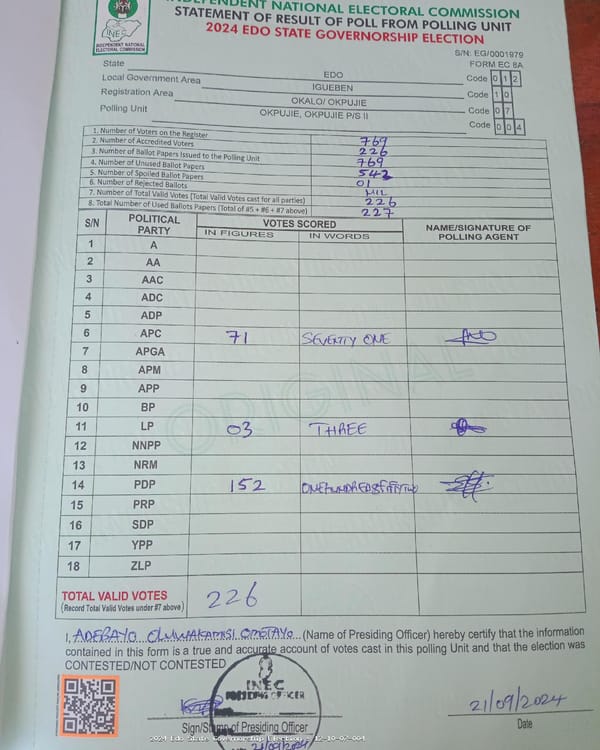 INDEPENDENT NATIONAL ELECTORAL COMMISSION
STATEMENT OF RESULT OF POLL FROM POLLING UNIT
2024 EDO STATE GOVERNORSHIP ELECTION
INEC
INDEPENDENT NATIONAL
ELECTORAL COMMISSION
S/N: EG/0001979
FORM EC 8A
State EDO Code 0 1 2
Local Government Area IGUEBEN Code 1 0
Registration Area OKALO/ OKPUJIE Code 0 7
Polling Unit OKPUJIE, OKPUJIE P/S II Code 0 0 4
1. Number of Voters on the Register 769
2. Number of Accredited Voters 226
3. Number of Ballot Papers Issued to the Polling Unit 769
4. Number of Unused Ballot Papers 542
5. Number of Spoiled Ballot Papers 01
6. Number of Rejected Ballots NIL
7. Number of Total Valid Votes (Total Valid Votes cast for all parties) 226
8. Total Number of Used Ballots Papers (Total of #5 + #6 + #7 above) 227
S/N POLITICAL PARTY VOTES SCORED NAME/SIGNATURE OF POLLING AGENT
IN FIGURES IN WORDS
1 A
2 AA
3 AAC
4 ADC
5 ADP
6 APC 71 SEVENTY ONE
7 APGA
8 APM
9 APP
10 BP
11 LP 03 THREE
12 NNPP
13 NRM
14 PDP 152 ONE HUNDRED & FIFTY TWO
15 PRP
16 SDP
17 YPP
18 ZLP
ORIGINAL
TOTAL VALID VOTES 226
(Record Total Valid Votes under #7 above)
I, ADEBAYO (Name of Presiding Officer) hereby certify that the information
contained in this form is a true and accurate account of votes cast in this polling Unit and that the election was
CONTESTED/NOT CONTESTED
INEC
PRESIDING OFFICER
21/09/2024
21/09/2024
Sign/Stamp of Presiding Officer
Date
2024 Edo State Governorship Election - 12-10-07-004